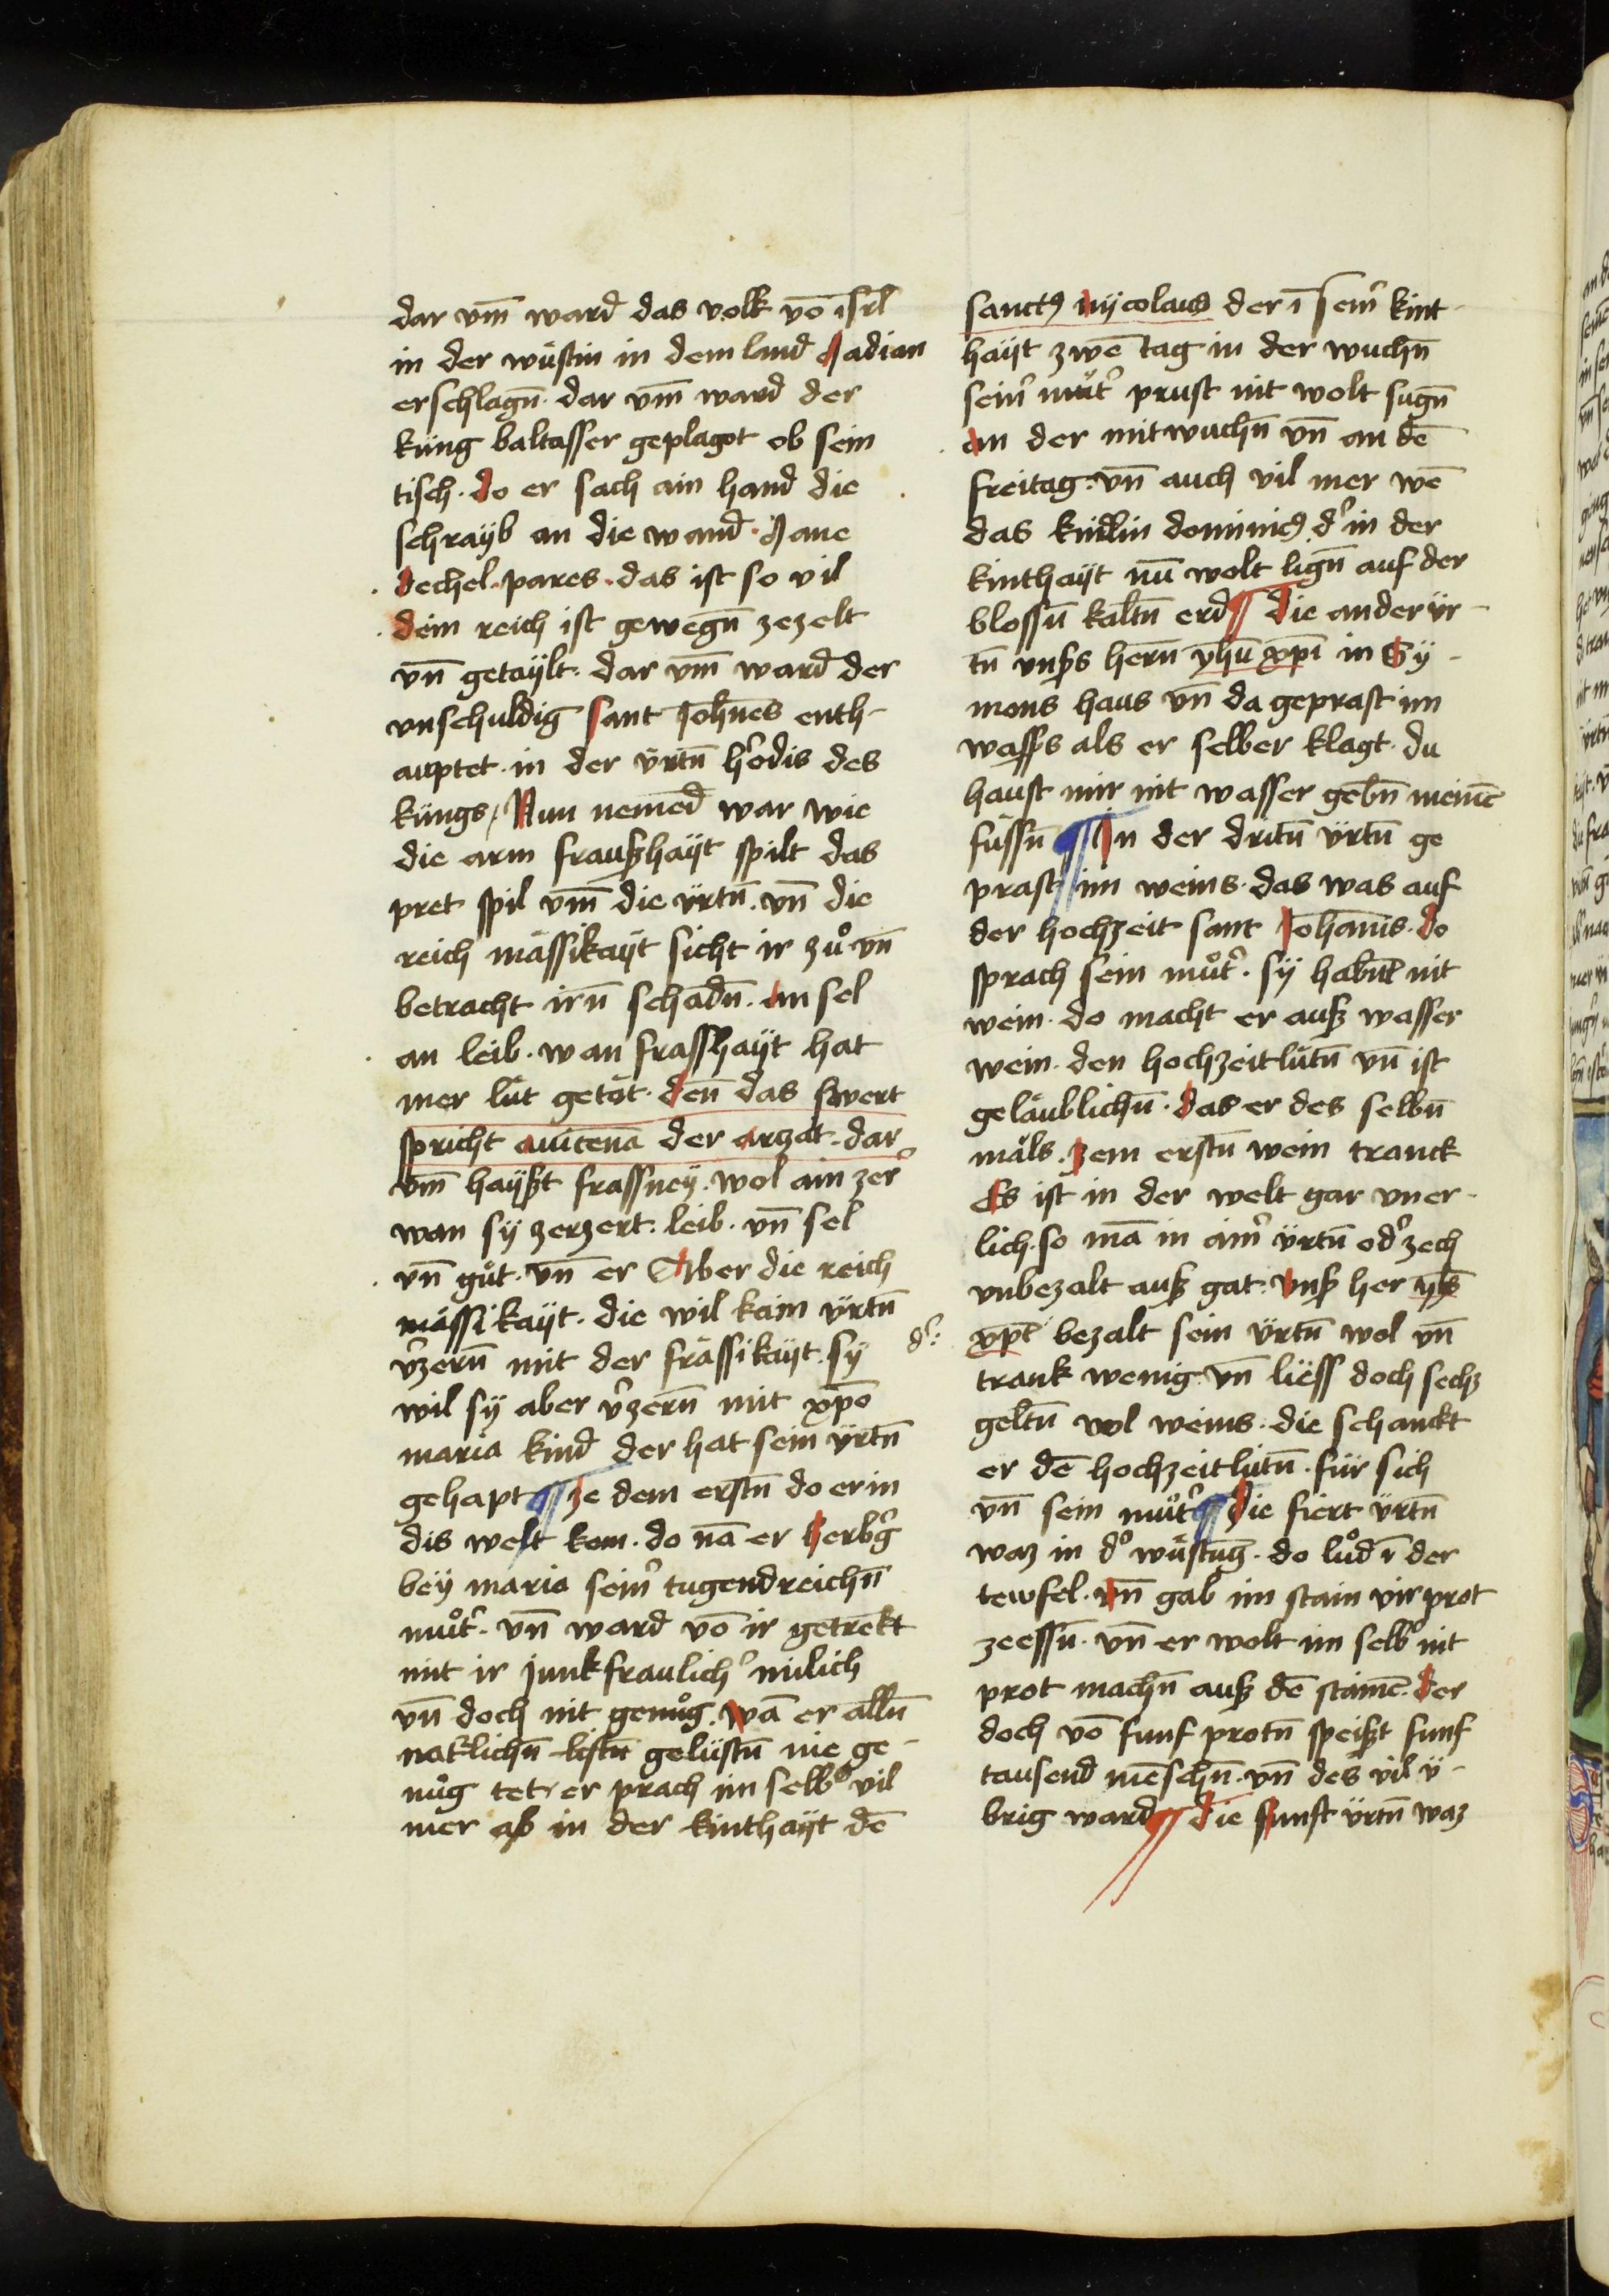 dar vm̄ ward das volk vō isrl̄
in der wuͤstin in dem land Madian
erschlagn̄ · dar vm̄ ward der
kuͤng baltasser geplagot ob sein
tisch · do er sach ain hand die
schrayb an die wand · Mane
techel · pares · das ist so vil
dein reich ist gewegn̄ zezelt
vn̄ getaylt · dar vm̄ ward der
vnschuldig sant Joh̄nes enth-
auptet · in der vrtn̄ h̓odis des
kuͤngs / Nun nemed war wie
die arm fraußhayt spilt das
pret spil vm̄ die vrtn̄ · vn̄ die
reich maͤssikayt sicht ir zuͦ vn̄
betracht irn̄ schadn̄ · an sel
an leib · wan frasshayt hat
mer luͤt getoͤt · den̄ das swert
spricht auicena der arzat · dar
vm̄ hayßt frassney · wol ain zer̓
wan sy zerzert · leib · vn̄ sel
vn̄ guͦt · vn̄ er Aber die reich
maͤssikayt · die wil kain vrtn̄
v̓zern̄ mit der fraͤssikayt · sy
wil sy aber v̓zern̄ mit xp̄o
maria kind der hat sein vrtn̄
gehapt ¶ Ze dem erstn̄ do er in
dis welt kom · do nā er herbg̓
bey maria sein̓ tugendreichn̄
muͦt̓ · vn̄ ward vō ir getrēkt
mit ir junkfraulich̓ milich
vn̄ doch nit genuͦg · wā er alln̄
natlichn̄ lystn̄ gelustn̄ nie ge-
nuͦg tet · er prach im selb̓ vil
mer ab in der kinthayt dē
sanct9 nycolaus der ī sein̓ kint-
hayt zwē tag in der wuchn̄
sein̓ muͦt̓ prust nit wolt sugn̄
an der mitwuchn̄ vn̄ an dē
freitag · vn̄ auch vil mer wē
das kindlin dominic9 d̓ in der
kinthayt nū wolt lign̄ auf der
blossn̄ kaltn̄ erd ¶ Die ander vr-
tn̄ vnßs hern̄ yhū xp̄i in Sy-
mons haus vn̄ da geprast im
wassers als er selber klagt · du
haust mir nit wasser gebn̄ meinē
fuͤssn̄ ¶ In der dritn̄ vrtn̄ ge
prast im weins · das was auf
der hochzeit sant Johanis · do
sprach sein muͦt̓ · sy habn̄t nit
wein · do macht er auß wasser
wein · den hochzeitluͤtn̄ vn̄ ist
gelaͤublichn̄ · das er des selbn̄
maͤls · zem erstn̄ wein tranck
Es ist in der welt gar vner-
lich · so mā in ain̓ vrtn̄ od̓ zech
vnbezalt auß gat · vnß her yhs
d̓: xp̄c bezalt sein vrtn̄ wol vn̄
trank wenig · vn̄ liess doch sechz
geltn̄ vol weins · die schanckt
er dē hochzeitluͤtn̄ · fuͤr sich
vn̄ sein muͦt̓ ¶ Die fiert vrtn̄
waz in d̓ wuͤstung · do luͦd ī der
tewfel · vn̄ gab im stain vir prot
zeessn̄ · vn̄ er wolt im selb̓ nit
prot machn̄ auß dē stainē · der
doch vō funf protn̄ speißt funf
tausend mēschn̄ · vn̄ des vil v̈-
brig ward ¶ Die funft vrtn̄ waz